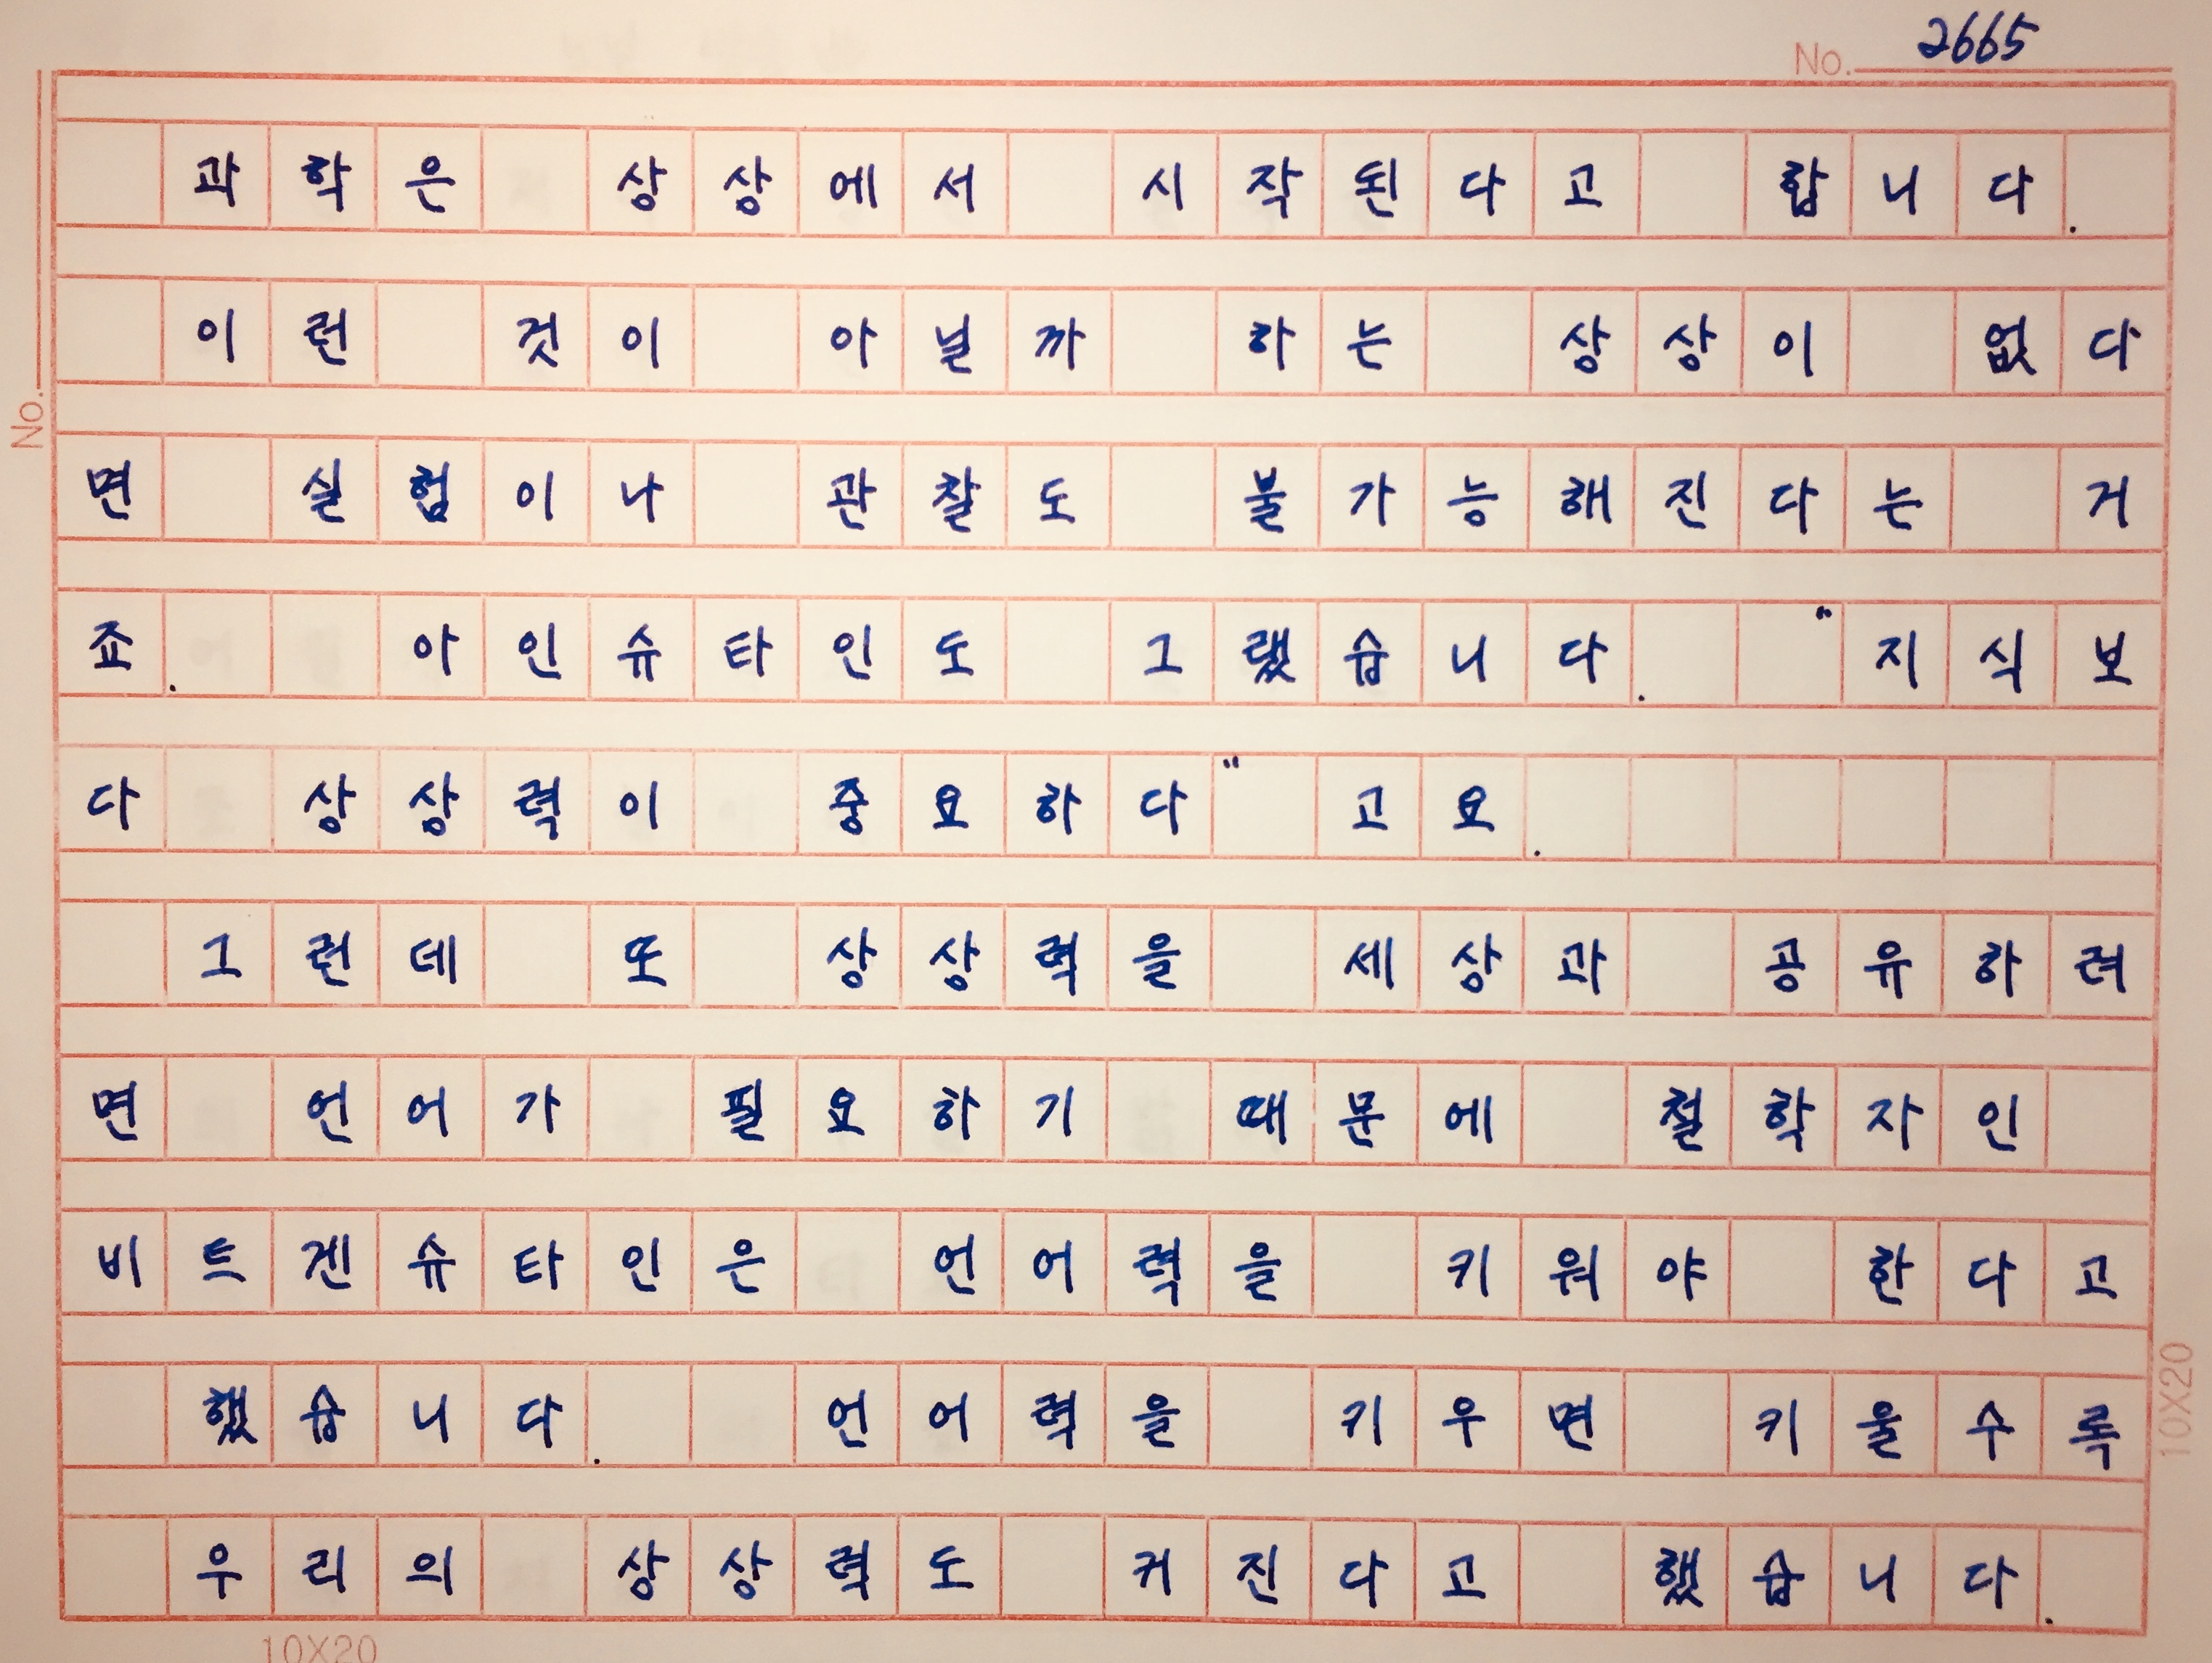 No. 2665
과학은 상상에서 시작된다고 합니다.
이런 것이 아닐까 하는 상상이 없다
면 실험이나 관찰도 불가능해진다는 거
죠. 아인슈타인도 그랬습니다. "지식보
다 상상력이 중요하다"고요.
그런데 또 상상력을 세상과 공유하려
면 언어가 필요하기 때문에 철학자인
비트겐슈타인은 언어력을 키워야 한다고
했습니다. 언어력을 키우면 키울수록
우리의 상상력도 커진다고 했습니다.
No.
10X20
10X20